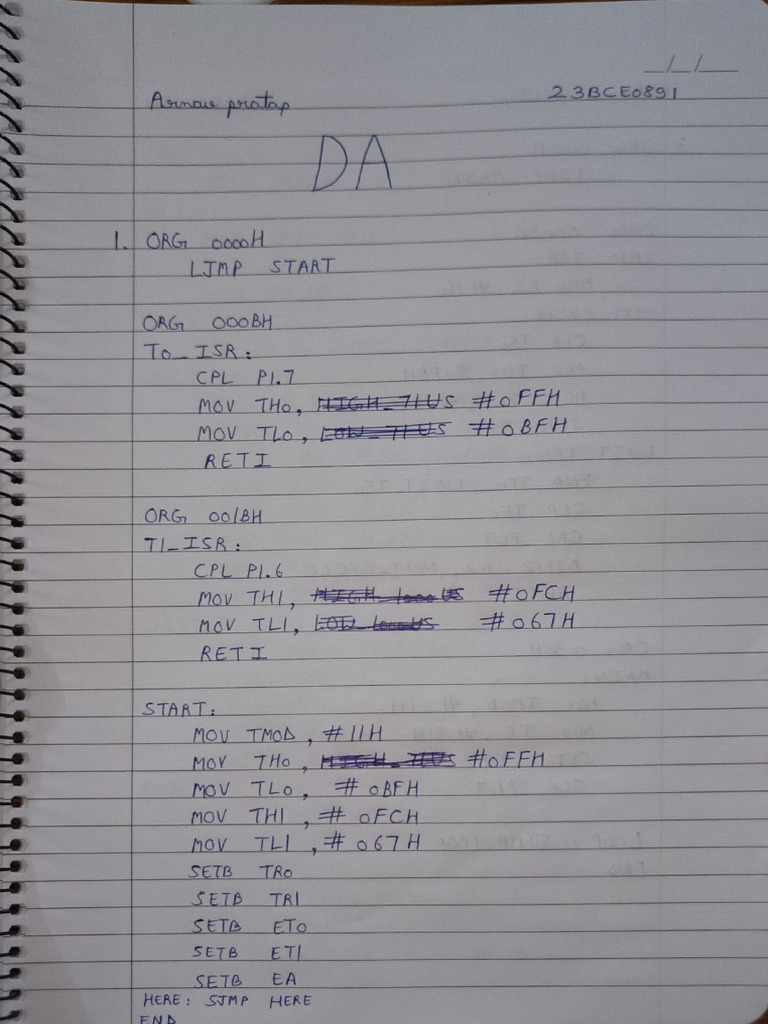 _/_/__
Arnav pratap 23BCE0891
DA
1. ORG 0000H
LJMP START
ORG 000BH
T0_ISR:
CPL P1.7
MOV TH0, HIGH_71US #0FFH
MOV TL0, LOW_71US #0BFH
RETI
ORG 001BH
T1_ISR:
CPL P1.6
MOV TH1, HIGH_1000US #0FCH
MOV TL1, LOW_1000US #067H
RETI
START:
MOV TMOD, #11H
MOV TH0, HIGH_71US #0FFH
MOV TL0, #0BFH
MOV TH1, #0FCH
MOV TL1, #067H
SETB TR0
SETB TR1
SETB ET0
SETB ET1
SETB EA
HERE: SJMP HERE
END